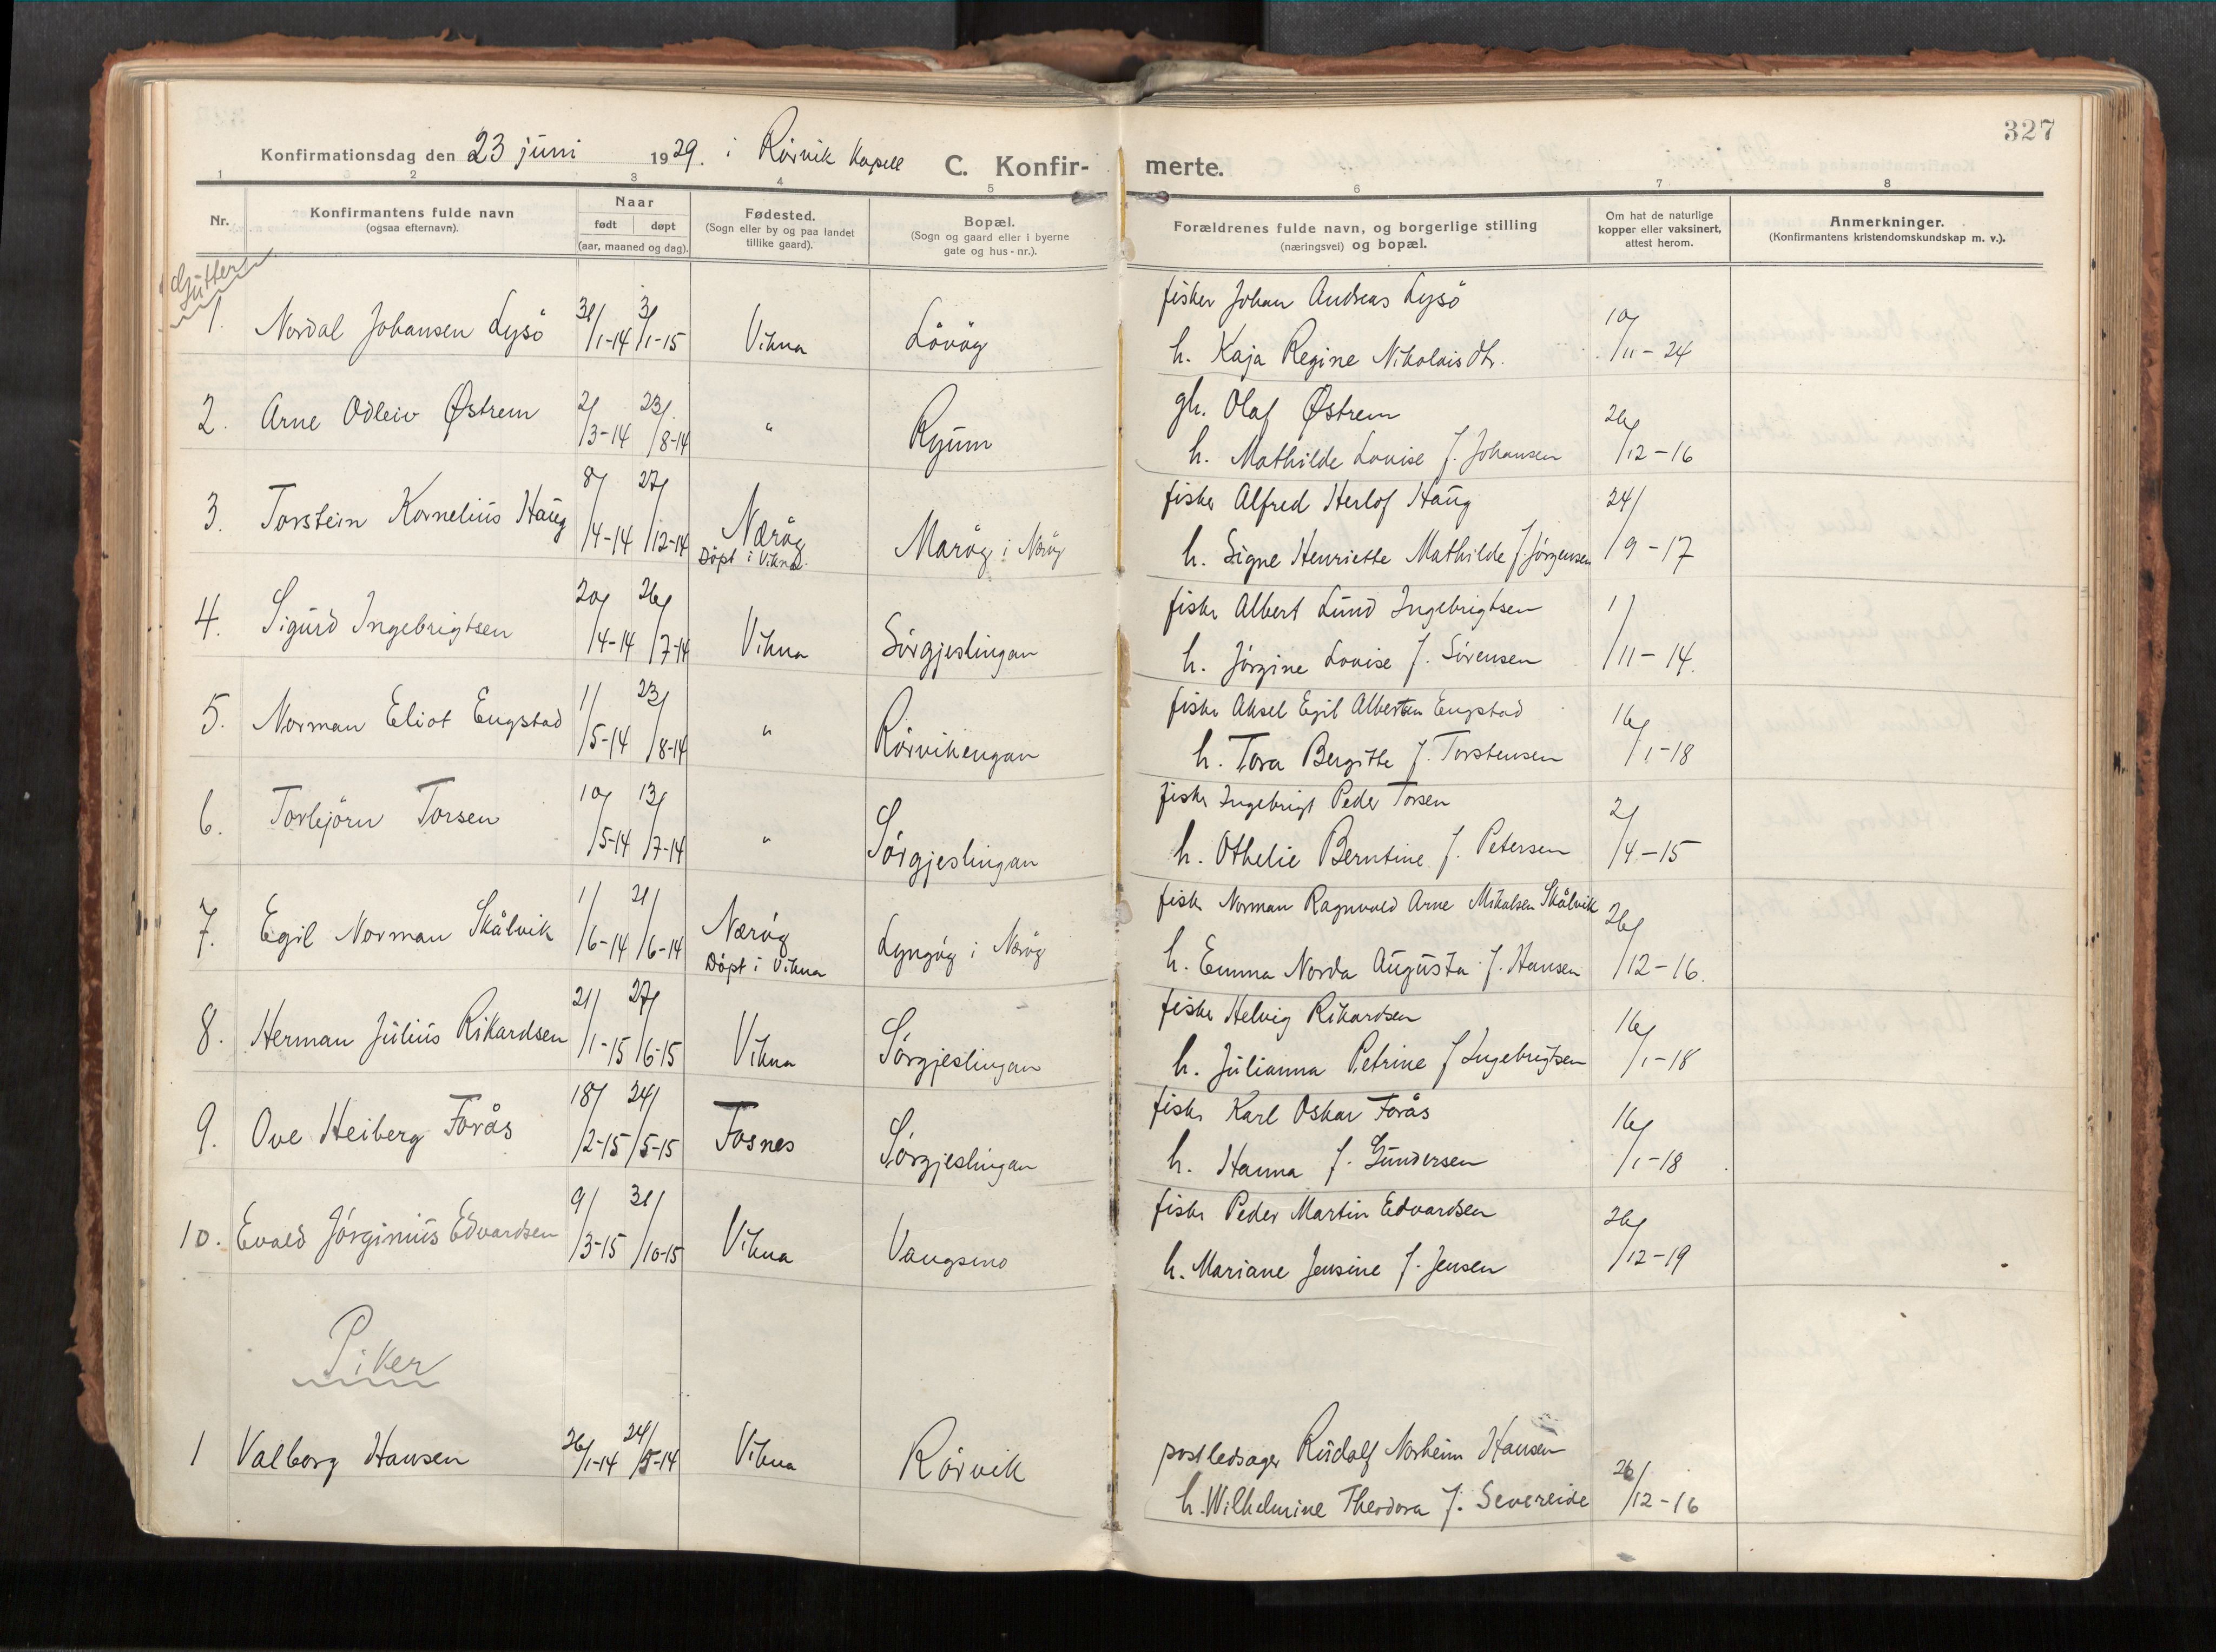 327
Konfirmationsdag den 23 juni 1929. i Rörvik Kapell C. Konfir- merte.
1 2 3 4 5 6 7 8
Nr.
Konfirmantens fulde navn
(ogsaa efternavn).
Naar
født døpt
(aar, maaned og dag).
Fødested.
(Sogn eller by og paa landet
tillike gaard).
Bopæl.
(Sogn og gaard eller i byerne
gate og hus-nr.).
Forældrenes fulde navn, og borgerlige stilling
(næringsvei) og bopæl.
Om hat de naturlige
kopper eller vaksinert,
attest herom.
Anmerkninger.
(Konfirmantens kristendomskundskap m. v.).
Gutter
fisker Johan Andreas Lysö
1. Nordal Johansen Lysö 31/1-14 3/1-15 Vikna Lövög h. Kaja Regine Nikolaisdtr. 10/11-24
gh. Olaf Østrem
2. Arne Odleiv Østrem 2/3-14 23/8-14 " Ryum h. Mathilde Lovise f. Johansen 26/12-16
fisker Alfred Herlof Haug
3. Torstein Kornelius Haug 8/4-14 27/12-14 Nærög Marög i Nærög h. Signe Henriette Mathilde f. Jörgensen 24/9-17
Döpt i Vikna
fisker Albert Lund Ingebrigtsen
4. Sigurd Ingebrigtsen 20/4-14 26/7-14 Vikna Sörgjeslingan h. Jörgine Lovise f. Sörensen 1/11-14.
fisker Aksel Egil Albertsen Engstad
5. Norman Eliot Engstad 1/5-14 23/8-14 " Rörvikengan h. Tora Bergitte f. Torstensen 16/1-18
fisker Ingebrigt Peder Torsen
6. Torbjörn Torsen 10/5-14 13/7-14 " Sörgjeslingan h. Othelie Berntine f. Petersen 2/4-15
fisk. Norman Ragnvald Arne Mikalsen Skålvik
7. Egil Norman Skålvik 1/6-14 21/6-14 Nærög Lyngög i Nærög h. Emma Norda Augusta f. Hansen 26/12-16.
Döpt i Vikna
fisker Helvig Rikardsen
8. Herman Julius Rikardsen 21/1-15 27/6-15 Vikna Sörgjeslingan h. Julianna Petrine f Ingebrigtsen 16/1-18
fisker Karl Oskar Forås
9. Ove Heiberg Forås 18/2-15 24/5-15 Fosnes Sörgjeslingan h. Hanna f. Gundersen 16/1-18
fisker Peder Martin Edvardsen
10. Evald Jörginius Edvardsen 9/3-15 31/10-15 Vikna Vaugsmo h. Mariane Jensine f. Jensen 26/12-19
Piker
postledsager Rudolf Norheim Hansen
1 Valborg Hansen 26/1-14 24/5-14 Vikna Rörvik h. Wilhelmine Theodora f. Severeide 26/12-16